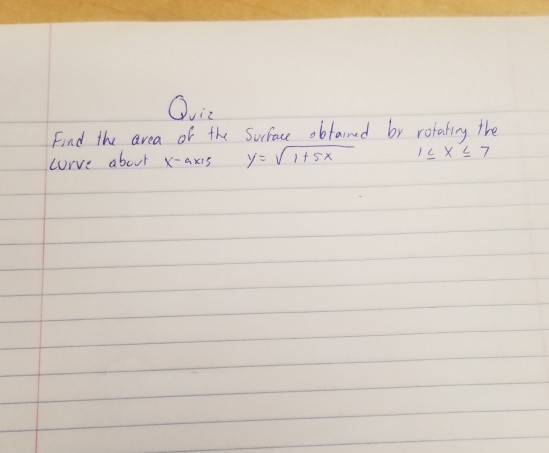 Quiz
Find the area of the Surface obtained by rotating the
curve about x-axis y = √1+5x 1 ≤ x ≤ 7